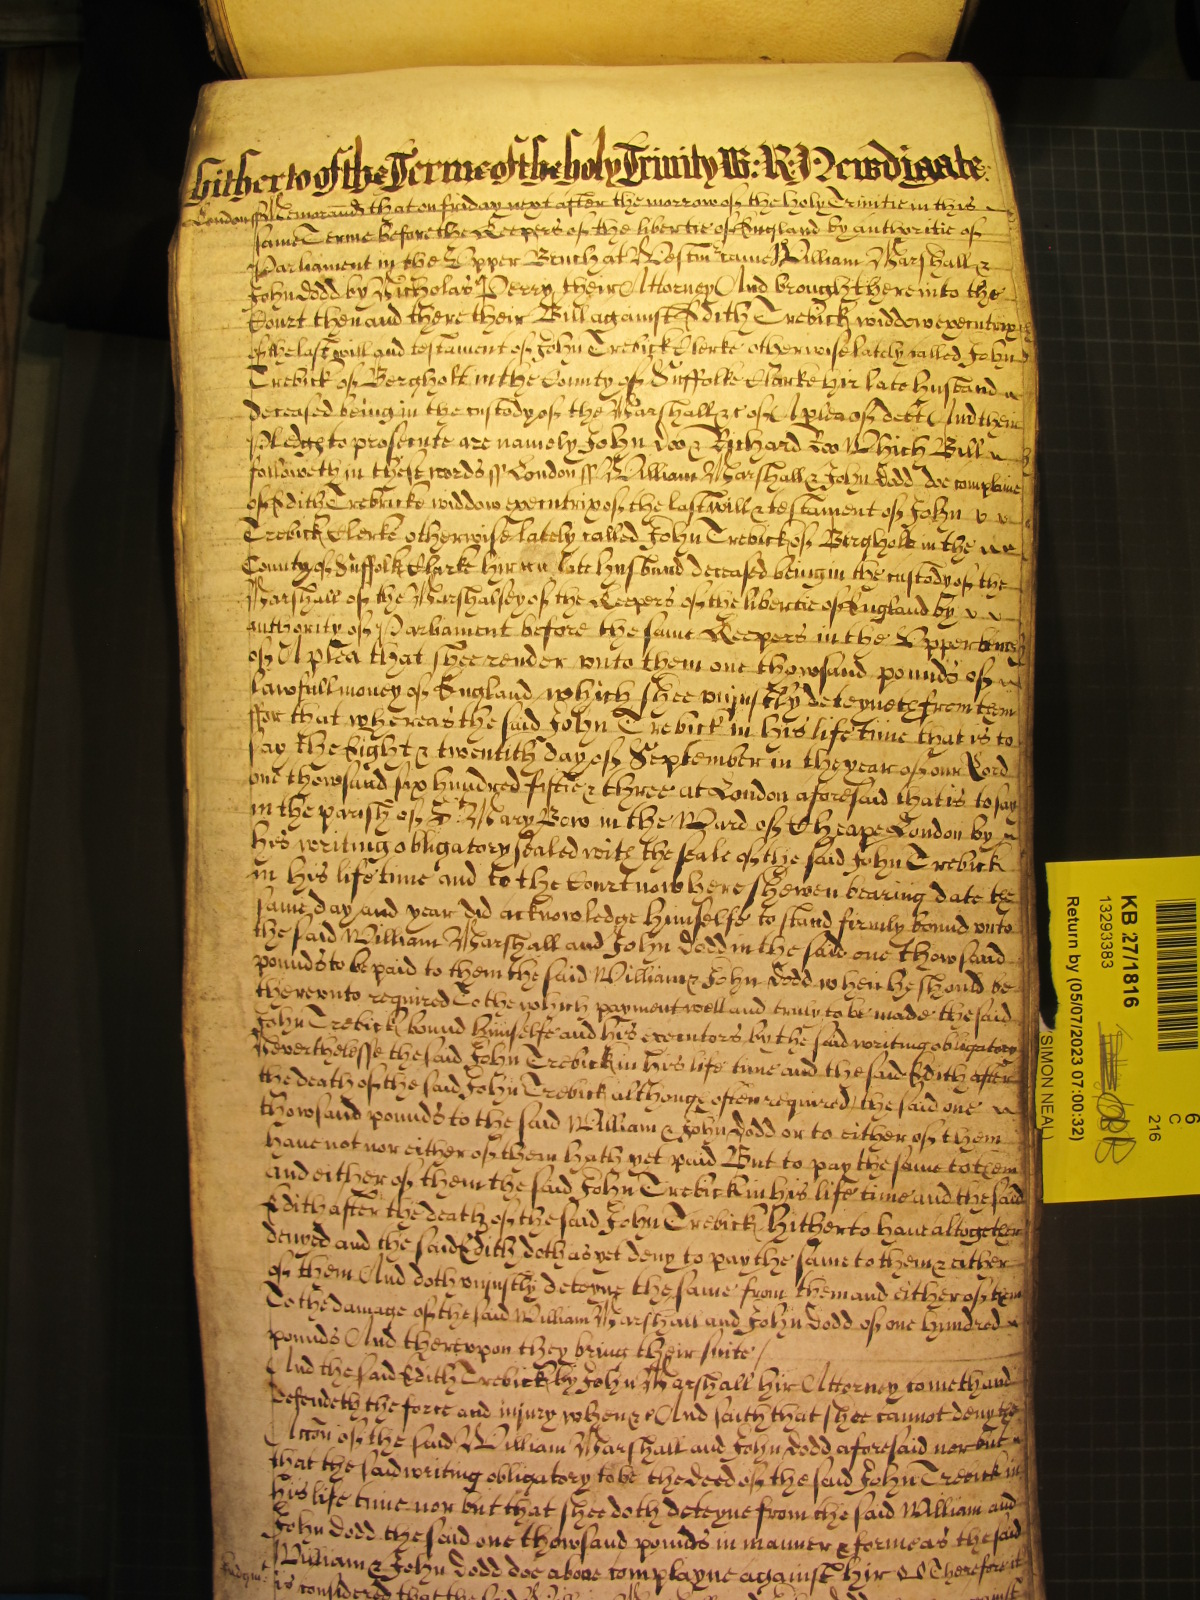 hitherto of the Terme of the holy Trinity W: R: Newdigate:
London ss Memorand that on friday next after the morrow of the holy Trinitie in this
same Terme before the Keepers of the libertie of England by authoritie of
Parliament in the Upper Bench at Westm came William Marshall &
John Dodd by Nicholas Perry their Attorney And brought here into the
Court then and there their Bill against Edith Trebick widdow executrix
of the last will and testament of John Trebick Clerke otherwise lately called John
Trebick of Bergholt in the County of Suffolke Clarke hir late husband
deceased being in the custody of the Marshall &c of A plea of debt And their
Pledg to prosecute are namely John Doo & Richard Roo Which Bill
followeth in theis words ss London ss William Marshall & John Dodd doe complaine
of Edith Trebricke widdow executrix of the last will & testament of John
Trebick Clerke otherwise lately called John Trebick of Bergholt in the
County of Suffolk Clarke hir late husband deceased being in the custody of the
Marshall of the Marshalsey of the Keepers of the libertie of England by
authority of Parliament before the same Keepers in the Upper bench
of A plea that shee render unto them one thowsand pounds of
lawfull money of England which shee uniustly deteyneth from them
ffor that whereas the said John Trebick in his life time that is to
say the Eight & twentith day of September in the year of our Lord
one thowsand six hundred fiftie & three at London aforesaid that is to say
in the parish of St Mary Bow in the Ward of Cheape London by
his writing obligatory sealed with the seale of the said John Trebick
in his life time and to the Court now here shewen bearing date the
same day and year did acknowledge himselfe to stand firmly bound unto
the said William Marshall and John Dodd in the said one thowsand
pounds to be paid to them the said William & John Dodd when he should be
thereunto required To the which payment well and truly to be made the said
John Trebick bound himselfe and his executors by the said writing obligatory
Neverthelesse the said John Trebick in his life time and the said Edith after
the death of the said John Trebick although often required the said one
thowsand pounds to the said William & John Dodd or to either of them
have not nor either of them hath yet paid But to pay the same to them
and either of them the said John Trebick in his life time and the said
Edith after the death of the said John Trebick hitherto have altogether
denyed and the said Edith doth as yet deny to pay the same to them & either
of them And doth uniustly deteyne the same from them and either of them
To the damage of the said William Marshall and John Dodd of one hundred
pounds And thereupon they bring their suite /
And the said Edith Trebick by John Marshall hir Attorney cometh and
defendeth the force and iniury when &c And saith that shee cannot deny the
Accon of the said William Marshall and John Dodd aforesaid nor but
that the said writing obligatory to be the deed of the said John Trebick in
his life time nor but that shee doth deteyne from the said William and
John Dodd the said one thowsand pounds in manner & forme as the said
William & John Dodd doe above complayne against hir Therefore it
Judgmt
is considered that the said
KB 27/1816
13293383
Return by (05/07/2023 07:00:32)
(SIMON NEAL)
6
C
216